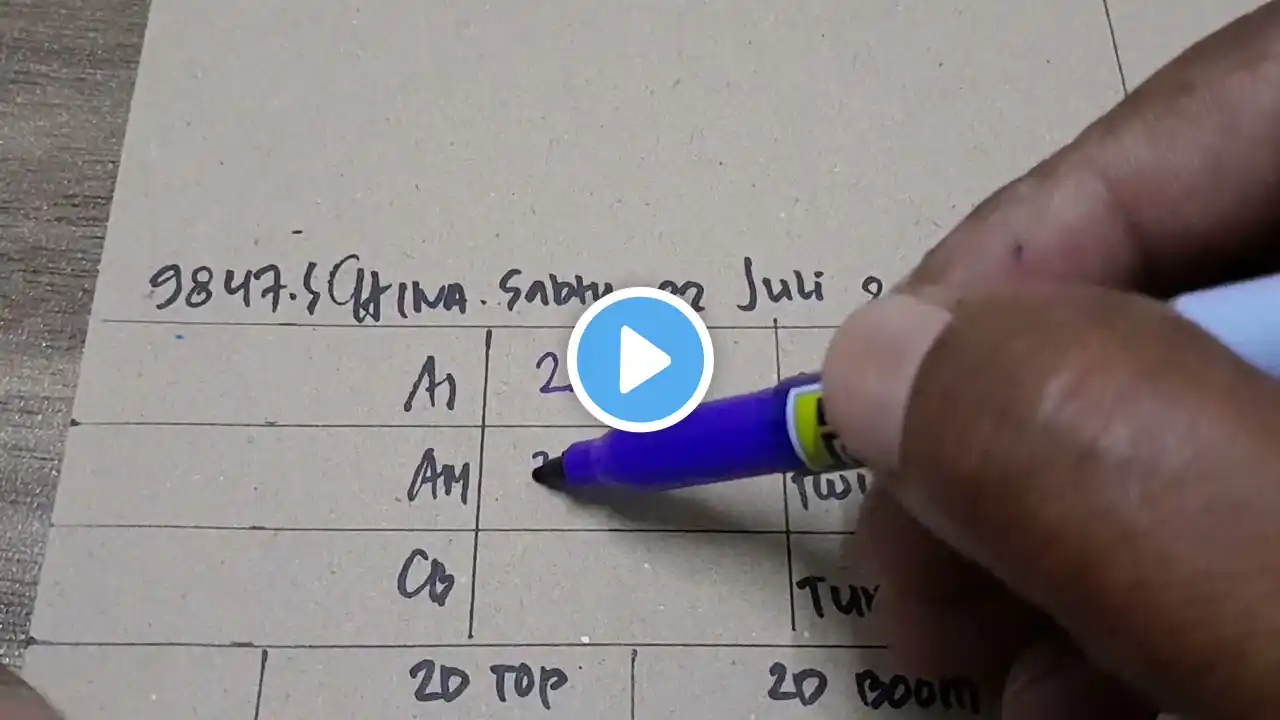 9847.SCHINA. Sabtu 22 Juli
AI 2
AM
CB
2D TOP 2D BOOM